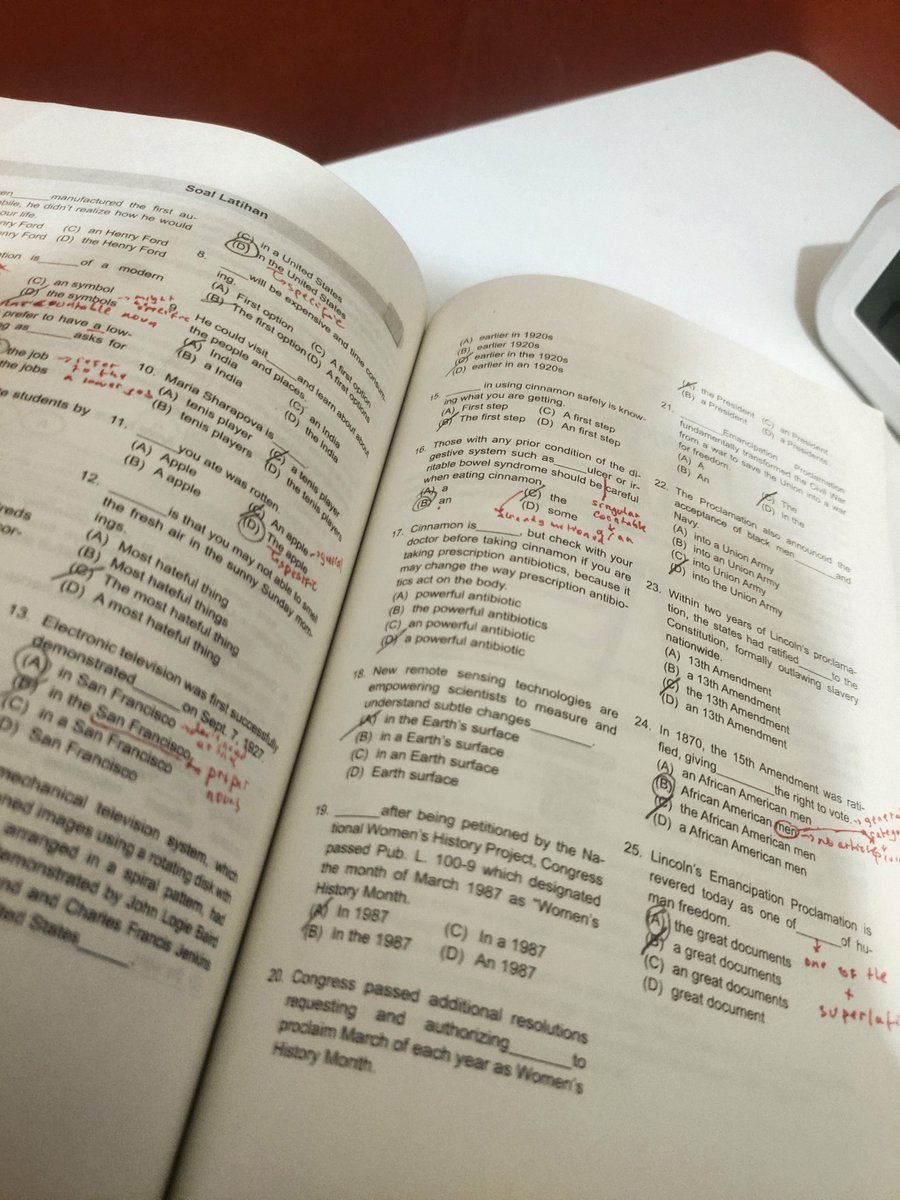 Soal Latihan
manufactured the first au-
bile, he didn't realize how he would
our life.
nry Ford (C) an Henry Ford
nry Ford (D) the Henry Ford
tion is______of a modern
(C) an symbol
(D) the symbols → might
be specific
countable noun
prefer to have a low-
g as______asks for
the job → refer
to the
a lower job
the jobs
e students by
(C) in a United States
(D) in the United States
↳ specific
8. ____will be expensive and time consum-
ing.
(A) First option (C) A first option
(B) The first option (D) A first options
9. He could visit____and learn about about
the people and places.
(A) India (C) an India
(B) a India (D) the India
10. Maria Sharapova is______.
(A) tenis player (C) a tenis player
(B) tenis players (D) the tenis players
11. ______you ate was rotten.
(A) Apple (C) An apple
(B) A apple (D) The apple
↳ specific
12. ______is that you may not able to smell
the fresh air in the sunny Sunday morn-
ings.
(A) Most hateful thing
(B) Most hateful things
(C) The most hateful thing
(D) A most hateful thing
13. Electronic television was first successfully
demonstrated______on Sept. 7, 1927.
(A) in San Francisco
(B) in the San Francisco
(C) in a San Francisco
(D) San Francisco
proper
nouns
mechanical television system, which
ned images using a rotating disk with
arranged in a spiral pattern, had
demonstrated by John Logie Baird
nd and Charles Francis Jenkins
ted States______.
(A) earlier in 1920s
(B) earlier 1920s
(C) earlier in the 1920s
(D) earlier in an 1920s
15. ____ in using cinnamon safely is know-
ing what you are getting.
(A) First step (C) A first step
(B) The first step (D) An first step
16. Those with any prior condition of the di-
gestive system such as_____ulcer or ir-
ritable bowel syndrome should be careful
when eating cinnamon.
(A) a (C) the
(B) an (D) some
already mentioned
singular
countable
a/an
17. Cinnamon is______, but check with your
doctor before taking cinnamon if you are
taking prescription antibiotics, because it
may change the way prescription antibio-
tics act on the body.
(A) powerful antibiotic
(B) the powerful antibiotics
(C) an powerful antibiotic
(D) a powerful antibiotic
18. New remote sensing technologies are
empowering scientists to measure and
understand subtle changes ________.
(A) in the Earth's surface
(B) in a Earth's surface
(C) in an Earth surface
(D) Earth surface
19. ______after being petitioned by the Na-
tional Women's History Project, Congress
passed Pub. L. 100-9 which designated
the month of March 1987 as "Women's
History Month.
(A) In 1987 (C) In a 1987
(B) In the 1987 (D) An 1987
20. Congress passed additional resolutions
requesting and authorizing________to
proclaim March of each year as Women's
History Month.
(A) the President (C) an President
(B) a President (D) a Presidents
21. ______Emancipation Proclamation
fundamentally transformed the Civil War
from a war to save the Union into a war
for freedom.
(A) A (C) The
(B) An (D) In the
22. The Proclamation also announced the
acceptance of black men______and
Navy.
(A) into a Union Army
(B) into an Union Army
(C) into Union Army
(D) into the Union Army
23. Within two years of Lincoln's proclama-
tion, the states had ratified______to the
Constitution, formally outlawing slavery
nationwide.
(A) 13th Amendment
(B) a 13th Amendment
(C) the 13th Amendment
(D) an 13th Amendment
24. In 1870, the 15th Amendment was rati-
fied, giving________the right to vote.
(A) an African American men
(B) African American men
(C) the African American men
(D) a African American men
25. Lincoln's Emancipation Proclamation is
revered today as one of______of hu-
man freedom.
(A) the great documents
(B) a great documents
(C) an great documents
(D) great document
one of the
+
superlati